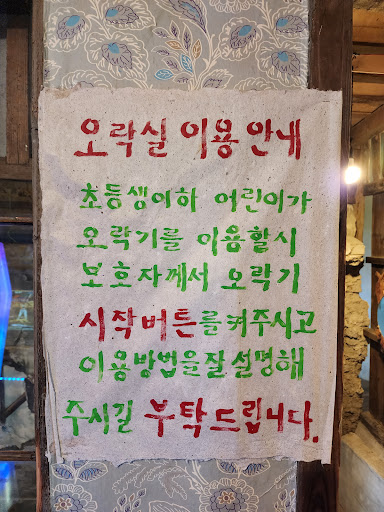 오락실 이용 안내
초등생이하 어린이가
오락기를 이용할시
보호자께서 오락기
시작버튼를 켜주시고
이용방법을잘설명해
주시길 부탁드립니다.